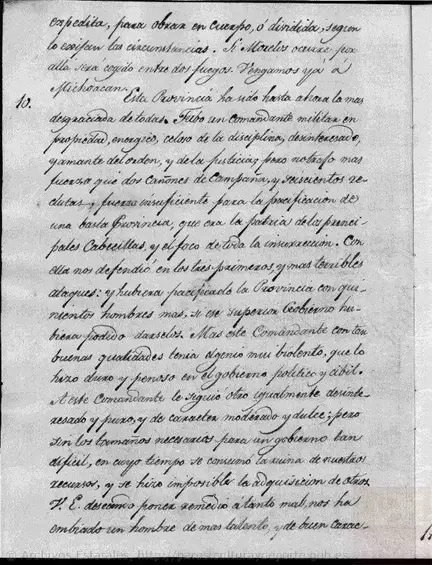 expedita, para obrar en cuerpo, ó dividida, segun
lo exijan las circunstancias. Si Morelos ocurre por
alla será cogido entre dos fuegos. Vengamos ya á
Michoacan.
10. Esta Provincia ha sido hasta ahora la mas
desgraciada de todas. Tubo un comandante militar en
propiedad, energico, celoso de la disciplina, desinteresado,
y amante del orden, y de la justicia; pero no trajo mas
fuerza que dos cañones de Campaña, y seiscientos re-
clutas; fuerza insuficiente para la pacificacion de
una basta Provincia, que era la patria de los princi-
pales Cabecillas, y el foco de toda la insurreccion. Con
ella nos defendió en los tres primeros, y mas terribles
ataques: y hubiera pacificado la Provincia con qui-
nientos hombres mas, si ese superior Gobierno hu-
biera podido darselos. Mas este Comandante con tan
buenas qualidades tenia el genio mui biolento, que lo
hizo duro y penoso en el gobierno politico y cibil.
A este Comandante le siguio otro igualmente desinte-
resado y puro, y de caracter moderado y dulce; pero
sin los tamaños necesarios para un gobierno tan
dificil, en cuyo tiempo se consumó la ruina de nuestros
recursos, y se hizo imposible la adquisicion de otros.
V. E. deseando poner remedio á tanto mal, nos ha
embiado un hombre de mas talento, y de buen carac-